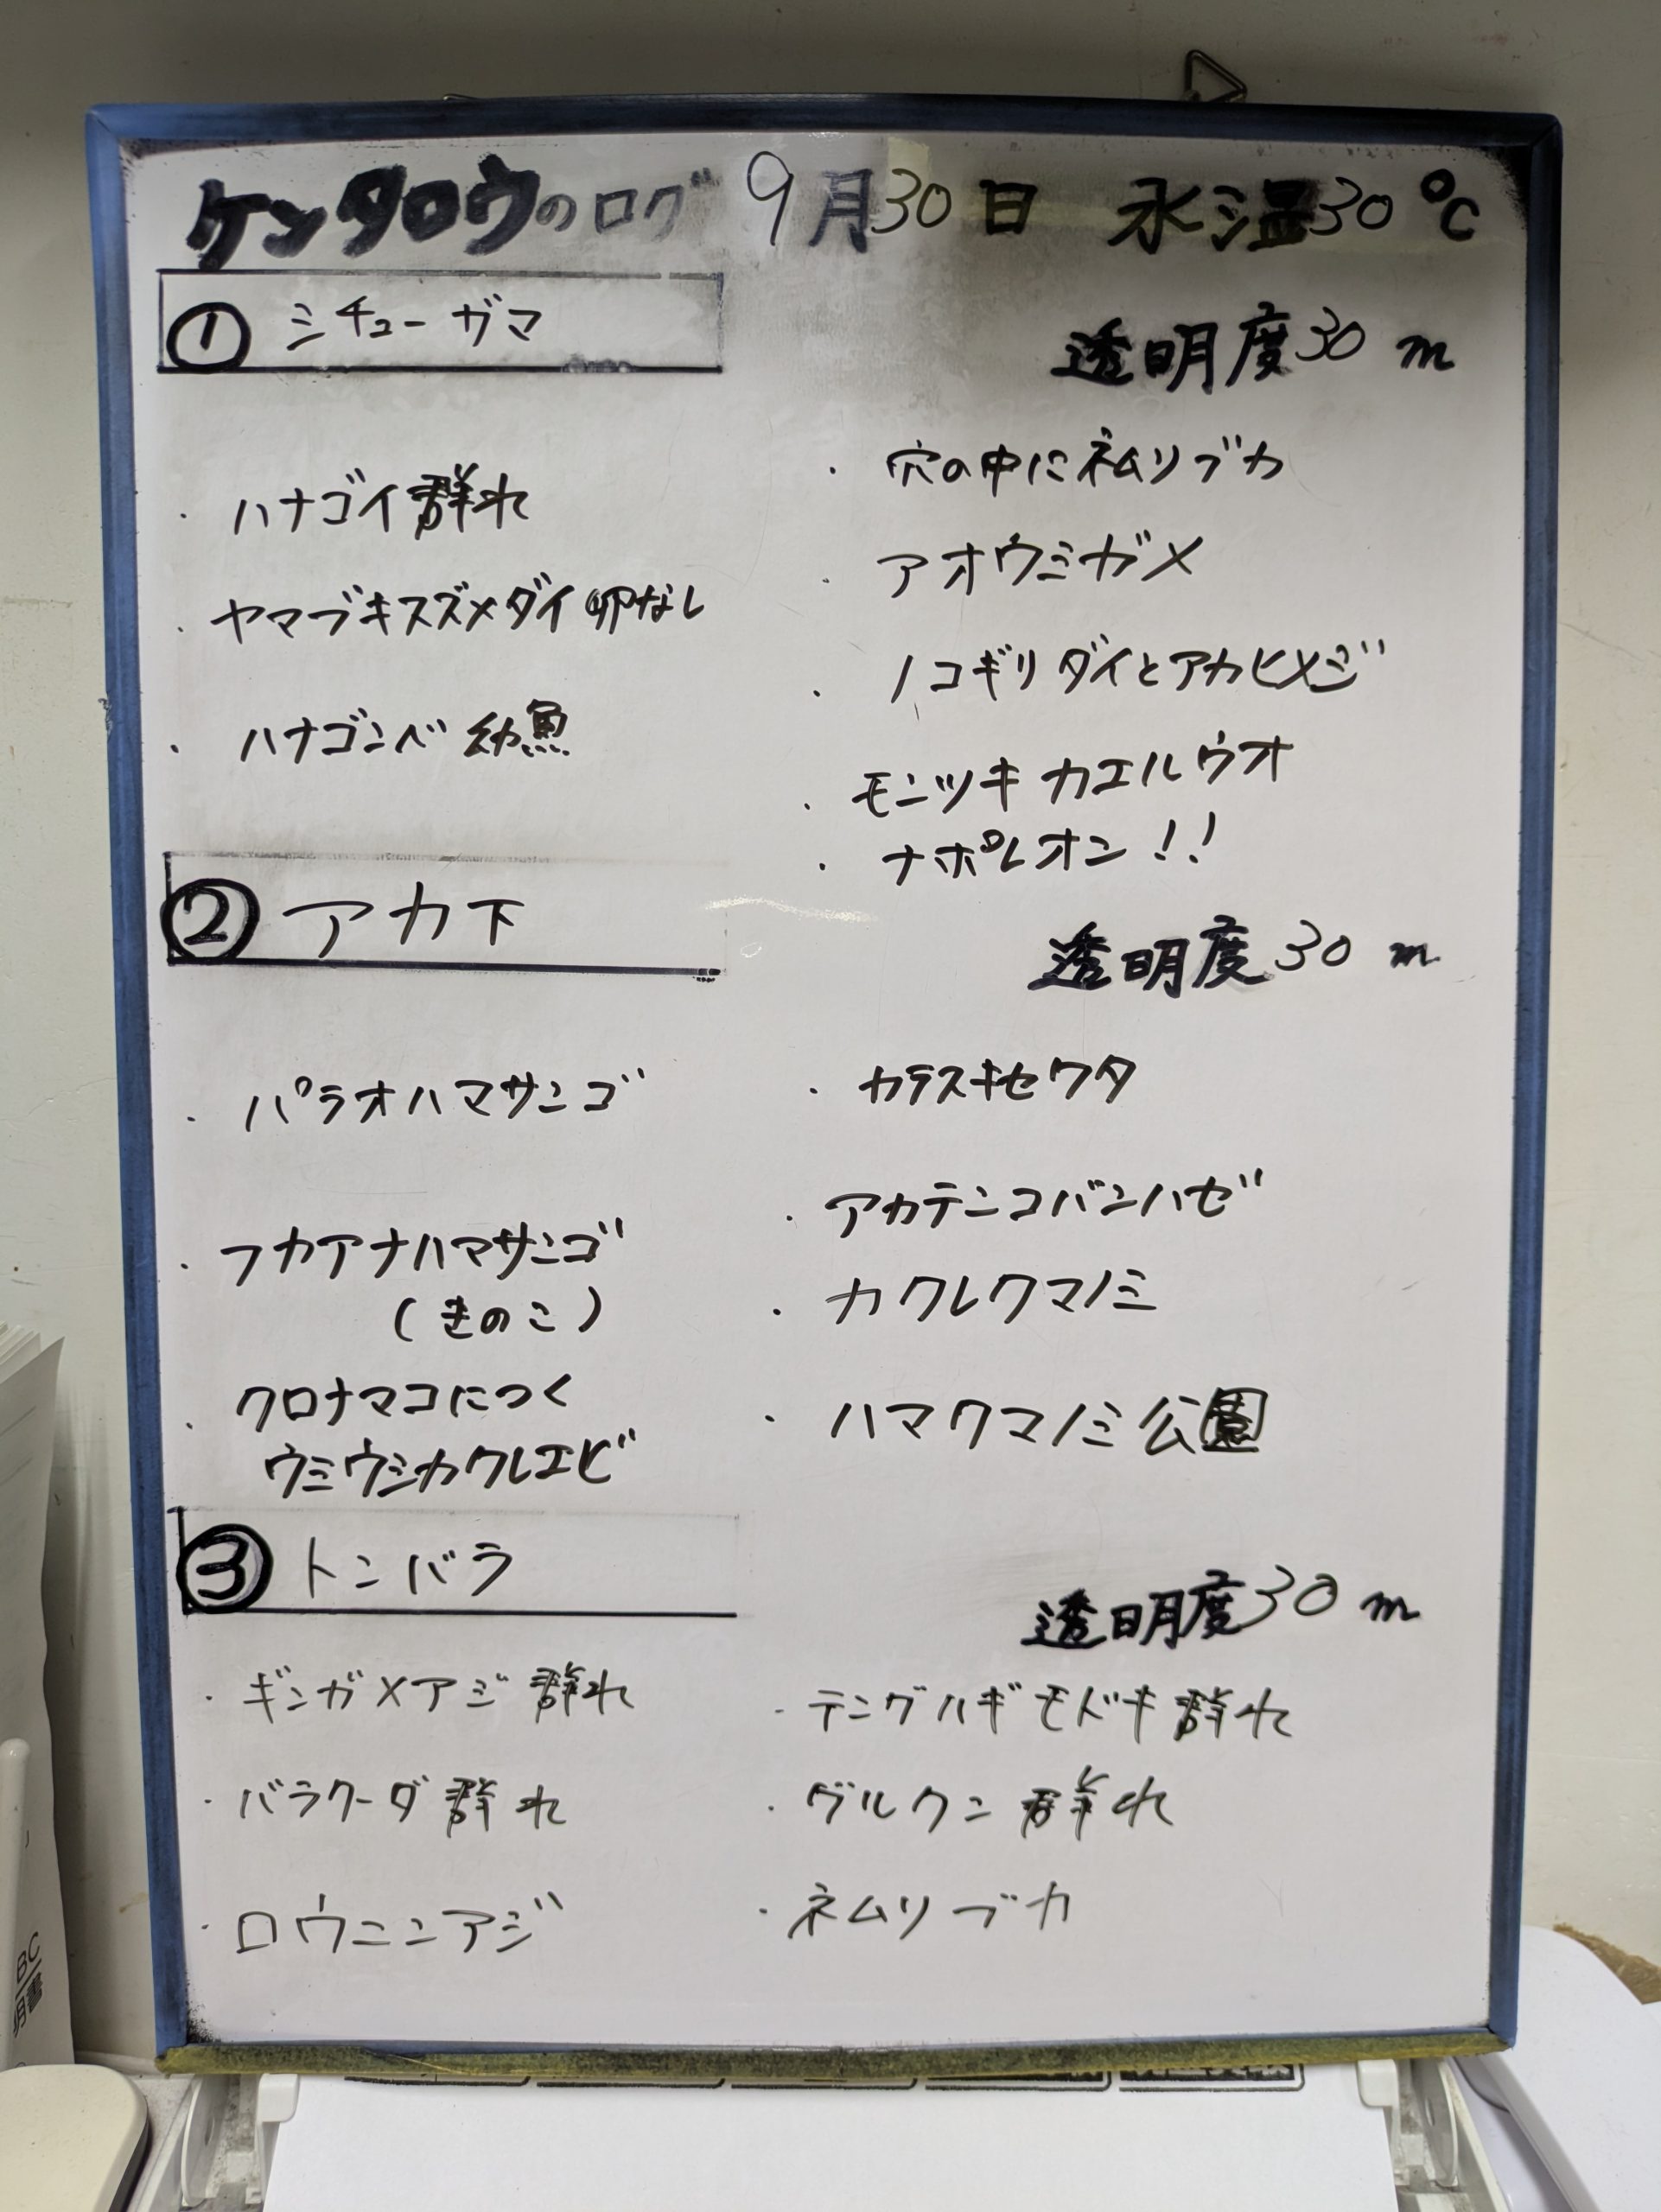 ケンタロウのログ 9月30日 水温30℃
① ミチューガマ
透明度30m
・ハナゴイ群れ
・ヤマブキスズメダイ卵なし
・ハナゴンベ 幼魚
・穴の中にネムリブカ
・アオウミガメ
・ノコギリダイとアカヒメジ
・モンツキカエルウオ
・ナポレオン!!
② アカ下
透明度30m
・パラオハマサンゴ
・フカアナハマサンゴ
(きのこ)
・クロナマコにつく
ウミウシカクレエビ
・カラスキセワタ
・アカテンコバンハゼ
・カクレクマノミ
・ハマクマノミ公園
③ トンバラ
透明度30m
・ギンガメアジ 群れ
・バラクーダ 群れ
・ロウニンアジ
・テングハギモドキ群れ
・グルクン 群れ
・ネムリブカ
BC
明書